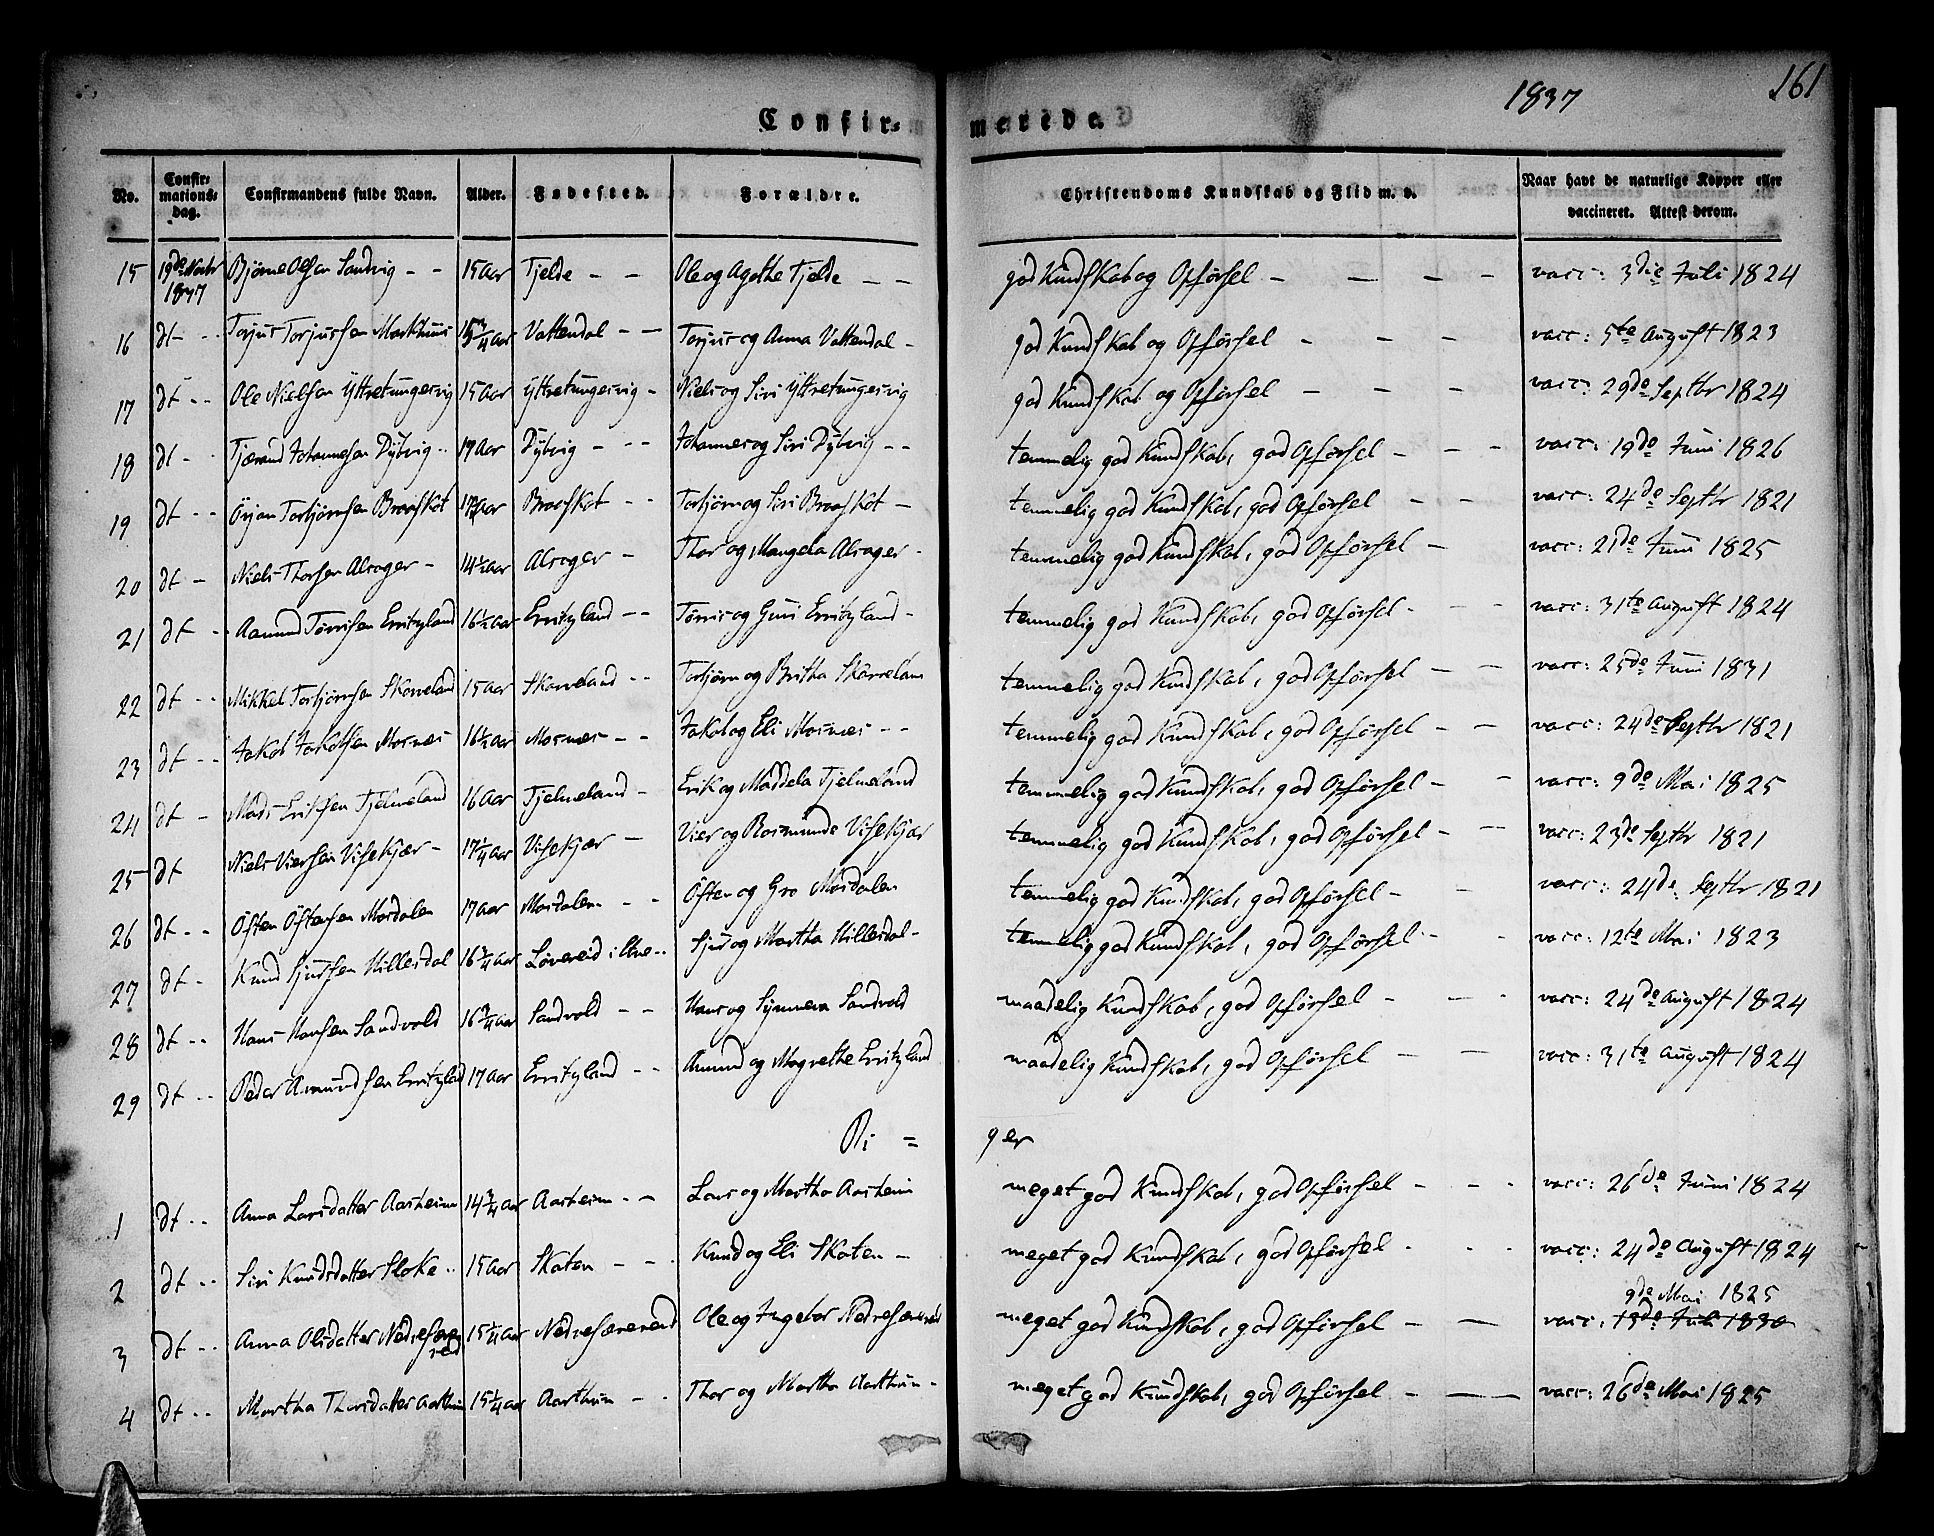 1837
161
Confir-
merede.
No.
Confir-
mations-
dag.
Confirmandens fulde Navn.
Alder.
Fødested.
Forældre.
Christendoms Kundskab og Flid m. v.
Naar havt de naturlige Kopper eller
vaccineret. Attest derom.
15 19de Novbr 1837 Bjørne Olsen Sandvig - - 15 Aar Tjelde - - Ole og Agathe Tjelde - - god Kundskab og Opførsel - - - - vacc: 3die Juli 1824
16 dt - - Torjus Torjussen Markhuus 15 3/4 Aar Vattendal - - Torjus og Anna Vattendal - god Kundskab og Opførsel - - - vacc: 5te August 1823
17 dt - - Ole Nielsen Yttretungesvig 15 Aar Yttretungesvig - Niels og Siri Yttretungesvig god Kundskab og Opførsel - - - vacc: 29de Septbr 1824
18 dt - - Tjærand Johannesen Dybvig - - 17 Aar Dybvig - - - Johannes og Siri Dybvig - - temmelig god Kundskab, god Opførsel - - - vacc: 19de Juni 1826
19 dt - - Örjan Torbjørnsen Braaskat Aar Braaskat - - Torbjørn og Siri Braaskat - temmelig god Kundskab, god Opførsel - - vacc: 24de Septbr 1821
20 dt - Niels Thorsen Alsager - 14 1/2 Aar Alsager - Thor og Mangela Alsager - temmelig god Kundskab, god Opførsel - vacc: 21de Juni 1825
21 dt - - Aamund Tørrisen Erritzland 16 1/2 Aar Erritzland - - Tørris og Guri Erritzland - temmelig god Kundskab, god Opførsel - - - vacc: 31te August 1824
22 dt - - Mikkel Torbjørnsen Skarveland 15 Aar Skarveland - - Torbjørn og Britha Skarveland temmelig god Kundskab, god Opførsel - - vacc: 25de Juni 1831
23 dt - - Jakob Jakobsen Mosnæs 16 1/2 Aar Mosnæs - - Jakob og Eli Mosnæs - - temmelig god Kundskab, god Opførsel - - vacc: 24de Septbr 1821
24 dt - Mads Eriksen Tjelmeland 16 Aar Tjelmeland - Erik og Maddela Tjelmeland temmelig god Kundskab, god Opførsel - - vacc: 9de Mai 1825
25 dt Niels Viersen Visekjær - 17 1/4 Aar Visekjær - Vier og Rosmunde Visekjær temmelig god Kundskab, god Opførsel - - vacc: 23de Septbr 1821
26 dt - - Östen Östensen Mosdalen 17 Aar Mosdalen - - Östen og Gro Mosdalen temmelig god Kundskab, god Opførsel - - vacc: 24de Septbr 1821
27 dt - Knud Sjursen Hillesdal 16 3/4 Aar Løvereid i Etne - - Sjur og Martha Hillesdal - temmelig god Kundskab, god Opførsel - - vacc: 12te Mai 1823
28 dt - - Hans Hansen Sandvold 16 3/4 Aar Sandvold - - Hans og Synneva Sandvold maadelig Kundskab, god Opførsel - - - vacc: 24de August 1824
29 dt - - Peder Amundsen Erritzland 17 Aar Erritzland - - Amund og Magrethe Erritzland maadelig Kundskab, god Opførsel - - vacc: 31te August 1824
Pi =
ger
1 dt - - Anna Larsdatter Aarheim 14 3/4 Aar Aarheim - - Lars og Martha Aarheim meget god Kundskab, god Opførsel - - - vacc: 26de Juni 1824
2 dt - - Siri Knudsdatter Floke - - 15 Aar Skaten - - - Knud og Eli Skaten - meget god Kundskab, god Opførsel - - - vacc: 24de August 1824
9de Mai 1825
3 dt - - Anna Olsdatter Nedresævereid 15 1/4 Aar Nedresævereid Ole og Ingebor Nedresævereid meget god Kundskab, god Opførsel - - vacc: 13de Juli 1830
4 dt - - Martha Thorsdatter Aarthun 15 1/4 Aar Aarthun - - Thor og Martha Aarthun - meget god Kundskab, god Opførsel - - - vacc: 26de Mai 1825